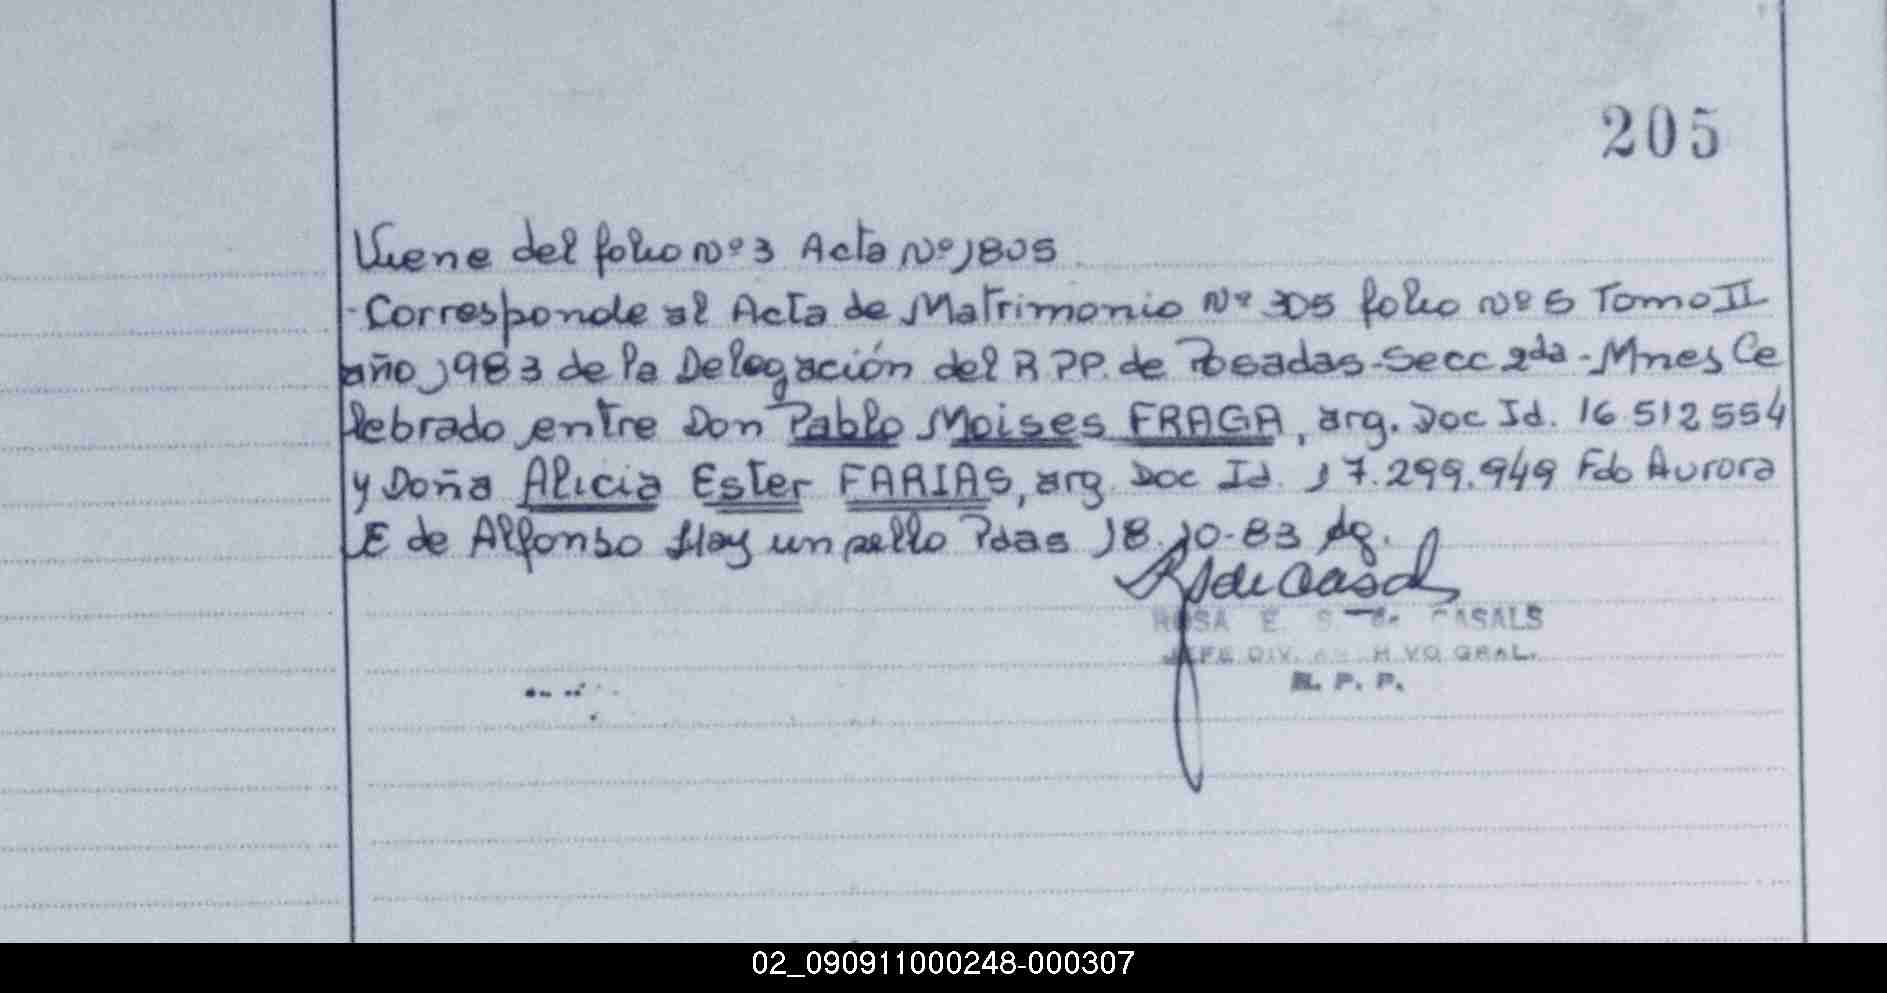 205
Viene del folio Nº 3 Acta Nº 1805
-Corresponde al Acta de Matrimonio Nº 305 folio Nº 5 Tomo II
año 1983 de la Delegación del R.PP. de Posadas-Secc 2da-Mnes Ce
lebrado entre Don Pablo Moises FRAGA, arg. Doc Id. 16.512554
y Doña Alicia Ester FARIAS, arg. Doc Id. 17.299.949 Fdo Aurora
E de Alfonso Hay un sello Pdas 18.10-83
ROSA E. S. de CASALS
JEFE DIV. ARCHIVO GRAL.
R. P. P.
02_090911000248-000307